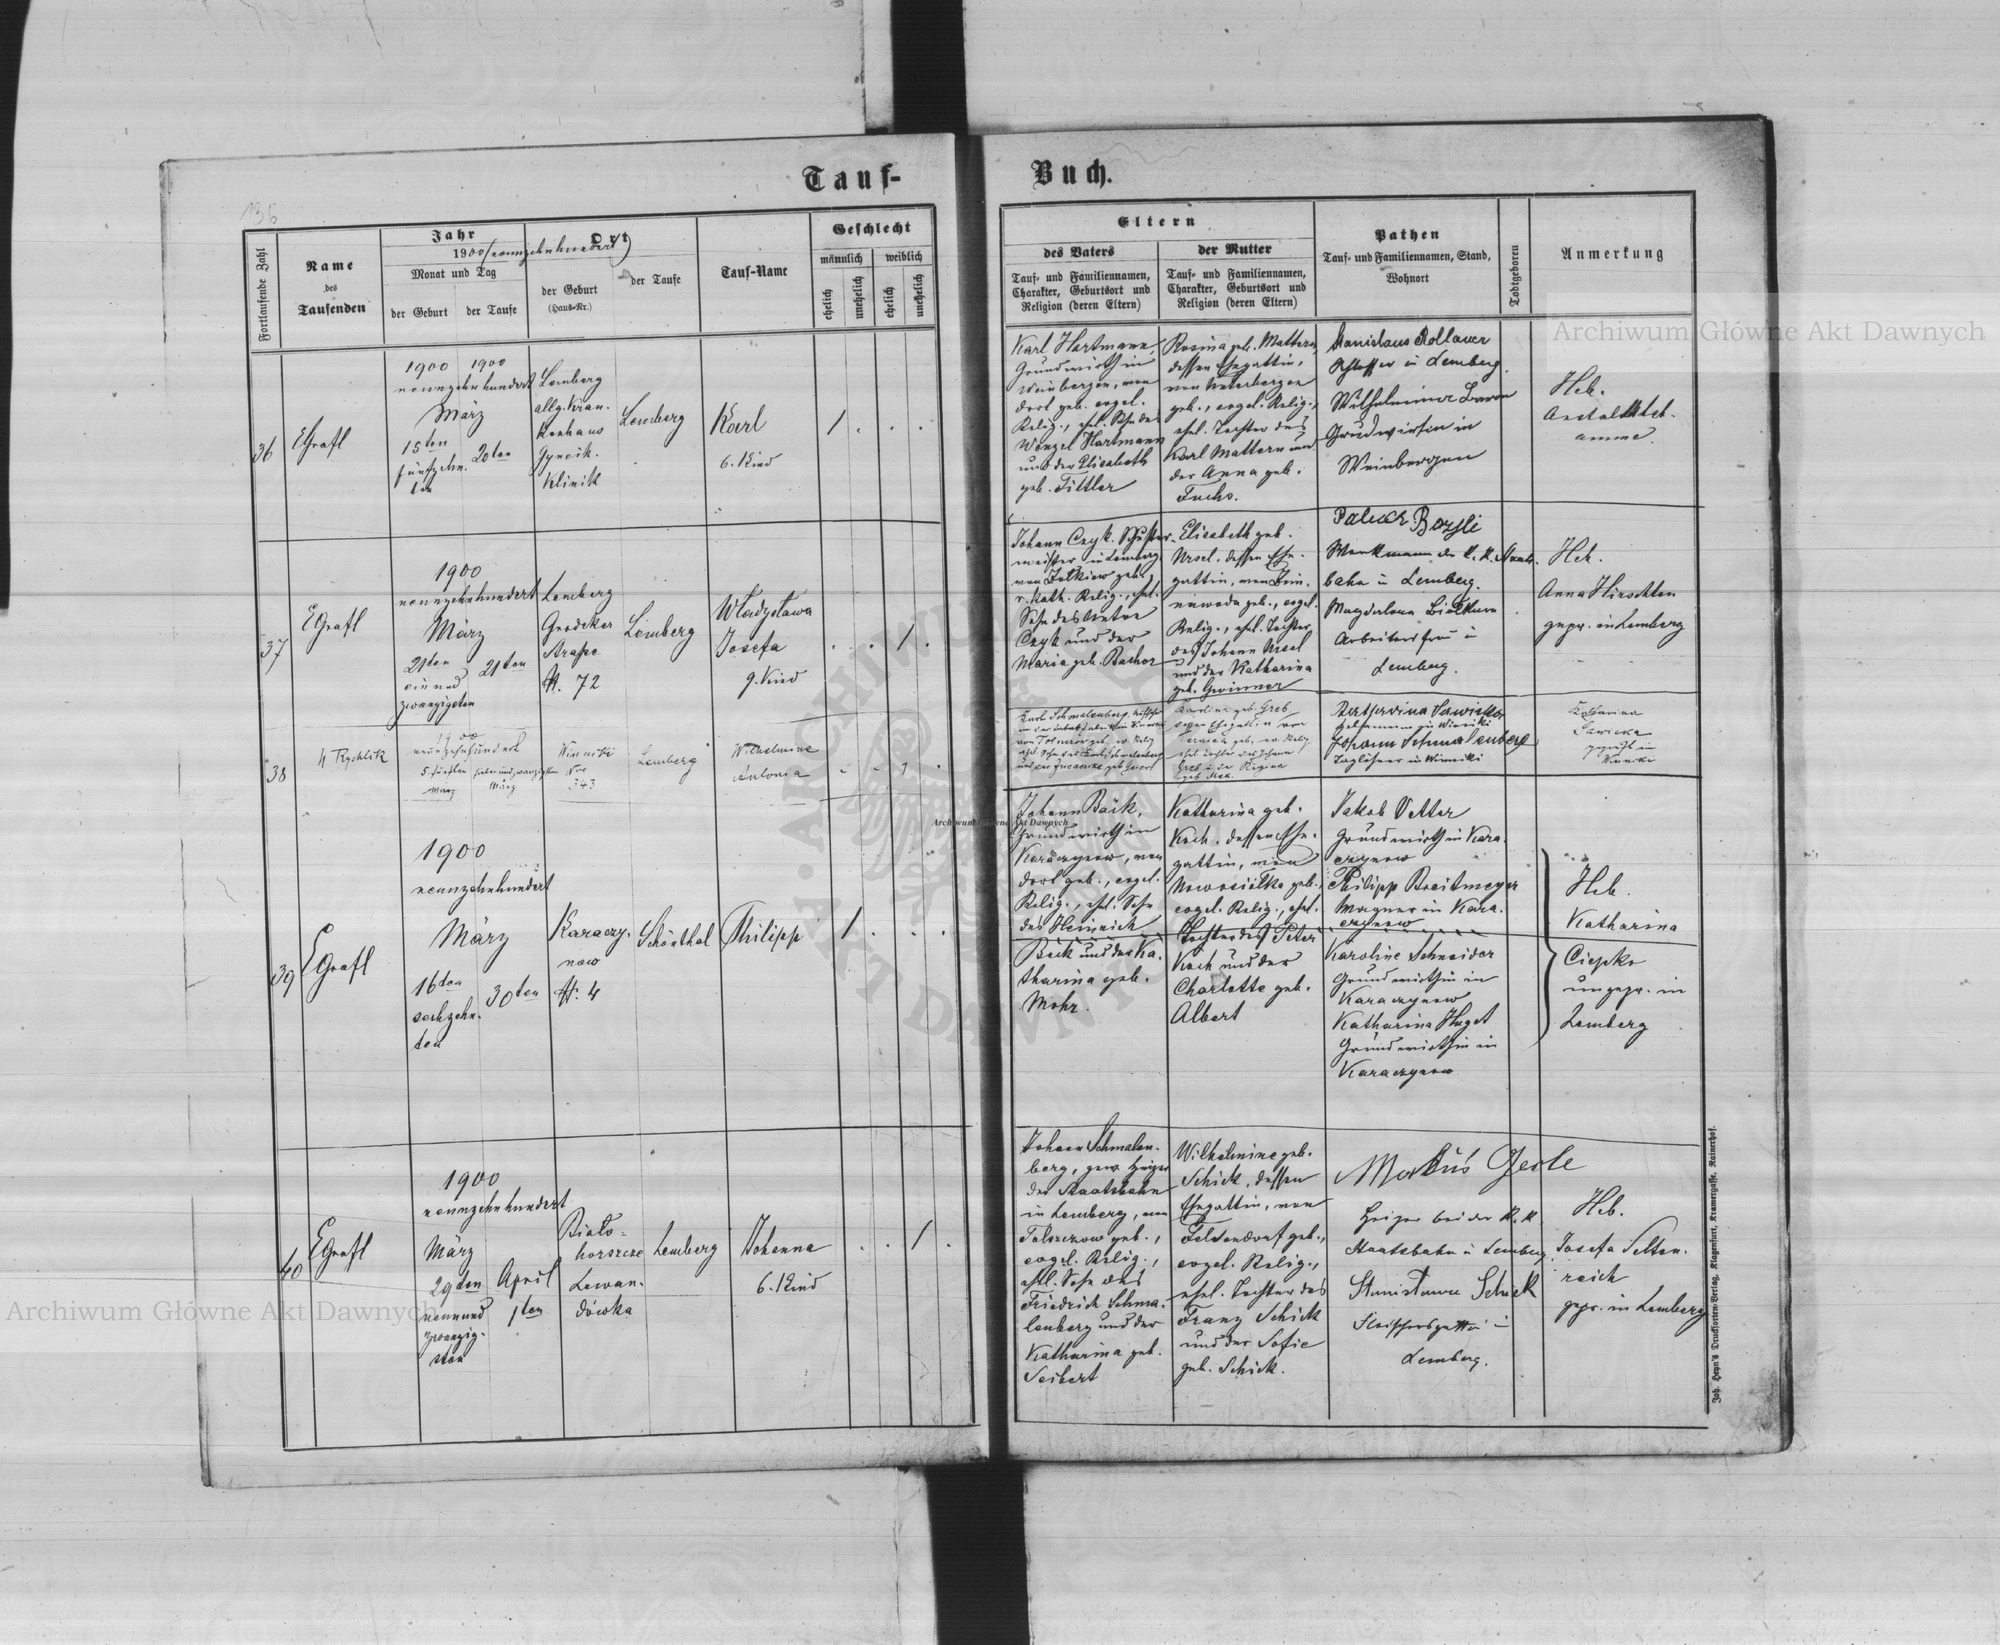 Tauf-
Buch.
136
Fortlaufende Zahl
Name
des
Taufenden
Jahr
1900 (neunzehnhundert)
Monat und Tag
der Geburt
der Taufe
Ort
der Geburt
(Haus-Nr.)
der Taufe
Tauf-Name
Geschlecht
männlich
weiblich
ehelich
unehelich
ehelich
unehelich
Eltern
des Vaters
Tauf- und Familiennamen,
Charakter, Geburtsort und
Religion (deren Eltern)
der Mutter
Tauf- und Familiennamen,
Charakter, Geburtsort und
Religion (deren Eltern)
Pathen
Tauf- und Familiennamen, Stand,
Wohnort
Todtgeboren
Anmerkung
36
EGrafl
1900 1900
neunzehnhundert
März
15ten
fünfzehn.
ten
20ten
Lemberg
allg. Kran.
kenhaus
Gynoik.
Klinik
Lemberg
Karl
6. Kind
/ . . .
Karl Hartmann,
Grundwirth in
Weinbergen, von
dort geb. evgel.
Relig., ehel. Sohn des
Wenzel Hartmann
und der Elisabeth
geb. Tittler
Rosina geb. Mattern,
dessen Ehegattin,
von Unterbergen
geb., evgel. Relig.,
ehel. Tochter des
Karl Mattern und
der Anna geb.
Fuchs.
Stanislaus Rollauer
Schlosser in Lemberg.
Wilhelmine
Grundwirtin in
Weinbergen
Heb.
Anstaltsheb.
amme.
37
EGrafl
1900
neunzehnhundert
März
21ten
ein und
zwanzigsten
21ten
Lemberg
Grodeker
Strasse
N. 72
Lemberg
Władysława
Josefa
9. Kind
. . / .
Johann Czyk. Schuster-
meister in Lemberg
von Zolkiew geb.,
r. kath. Relig., ehel.
Sohn des Anton
Czyk und der
Maria geb. Bachor
Elisabeth geb.
Ursel. dessen Ehe-
gattin, von
geb., evgel.
Relig., ehel. Tochter
des Johann Ursel
und der Katharina
geb. Gwinner
Werkmann der k. k. Staats-
bahn in Lemberg.
Magdalena
Arbeiterfrau in
Lemberg.
Heb.
Anna Hirschler
gepr. in Lemberg
38
1900
neunzehnhundert
5. fünften
März
sieben und zwanzigsten
März
Winniki
Nro
343
Lemberg
Wilhelmine
Antonia
- - 1 .
Karl Schmalenberg,
Karoline geb. Greb
Hebamme in Winniki
Johann Schmalenberg
Taglöhner in Winniki
Katharina
Sawicka
geprüft in
Winniki
39
EGrafl
1900
neunzehnhundert
März
16ten
sechzehn.
ten
30ten
Karaczy-
now
N. 4
Schönthal
Philipp
/ . . .
Johann Bäck,
Grundwirth in
Karaczynow, von
dort geb., evgel.
Relig., ehel. Sohn
des Heinrich
Bäck und der Ka.
tharina geb.
Mohr
Katharina geb.
Koch. dessen Ehe-
gattin, von
Nowosiółka geb.,
evgel. Relig., ehel.
Tochter des Peter
Koch und der
Charlotte geb.
Albert
Jakob Vetter
Grundwirth in Kara.
czynow
Philipp Breitmeyer
Wagner in Kara.
czynow
Karoline Schneider
Grundwirthin in
Karaczynow
Katharina Huget
Grundwirthin in
Karaczynow
Heb.
Katharina
Ciepko
ungepr. in
Lemberg
40
EGrafl
1900
neunzehnhundert
März
29ten
neunund
zwanzig-
sten
April
1ten
Biało-
horszcze
Lewan-
dówka
Lemberg
Johanna
6. Kind
. . / .
Johann Schmalen-
berg, gew. Heizer
der Staatsbahn
in Lemberg, von
Tolszczow geb.,
evgel. Relig.,
ehel. Sohn des
Friedrich Schma.
lenberg und der
Katharina geb.
Seibert
Wilhelmine geb.
Schick, dessen
Ehegattin, von
Falkendorf geb.,
evgel. Relig.,
ehel. Tochter des
Franz Schick
und der Sofie
geb. Schick.
Heizer bei der k. k.
Staatsbahn in Lemberg.
Stanisława Schick
Fleischersgattin in
Lemberg.
Heb.
Josefa Selten.
reich
gepr. in Lemberg
Joh. Heyn's Drucksorten-Verlag, Klagenfurt, Kramergasse, Rainerhof.
Archiwum Główne Akt Dawnych
Archiwum Główne Akt Dawnych
Archiwum Główne Akt Dawnych